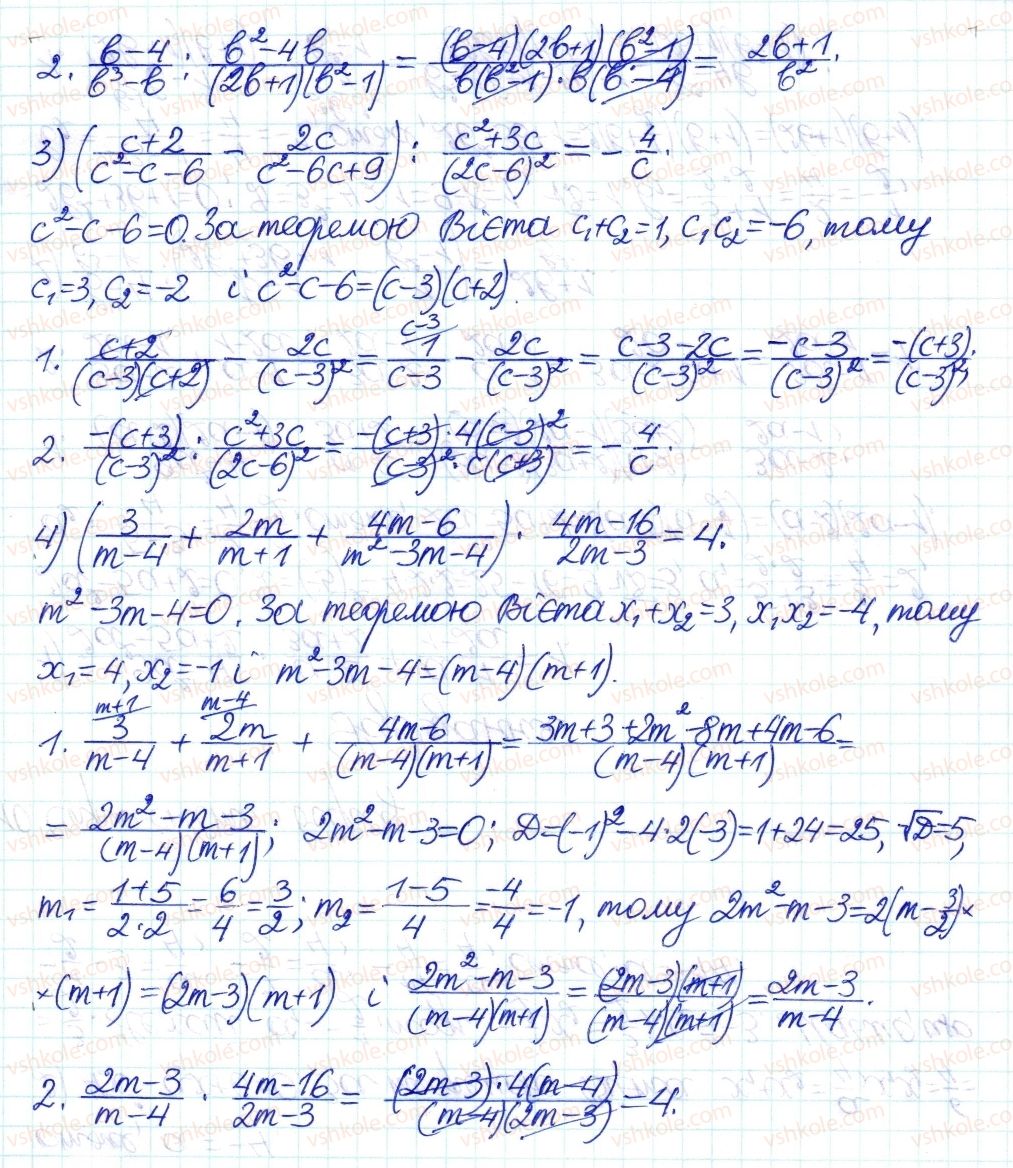 2. (в-4)/(в³-в) : (в²-4в)/((2в+1)(в²-1)) = ((в-4)(2в+1)(в²-1))/(в(в²-1)·в(в-4)) = (2в+1)/в².
3) ((c+2)/(c²-c-6) - 2c/(c²-6c+9)) : (c²+3c)/(2c-6)² = -4/c.
c²-c-6=0. За теоремою Вієта c₁+c₂=1, c₁c₂=-6, тому
c₁=3, c₂=-2 і c²-c-6=(c-3)(c+2).
1. (c+2)/((c-3)(c+2)) - 2c/(c-3)² = ᶜ⁻³⁄ 1/(c-3) - 2c/(c-3)² = (c-3-2c)/(c-3)² = (-c-3)/(c-3)² = -(c+3)/(c-3)²;
2. -(c+3)/(c-3)² : (c²+3c)/(2c-6)² = (-(c+3)·4(c-3)²)/((c-3)²·c(c+3)) = -4/c.
4) (3/(m-4) + 2m/(m+1) + (4m-6)/(m²-3m-4)) · (4m-16)/(2m-3) = 4.
m²-3m-4=0. За теоремою Вієта x₁+x₂=3, x₁x₂=-4, тому
x₁=4, x₂=-1 і m²-3m-4=(m-4)(m+1).
1. ᵐ⁺¹⁄ 3/(m-4) + ᵐ⁻⁴⁄ 2m/(m+1) + (4m-6)/((m-4)(m+1)) = (3m+3+2m²-8m+4m-6)/((m-4)(m+1)) =
= (2m²-m-3)/((m-4)(m+1)); 2m²-m-3=0; D=(-1)²-4·2(-3)=1+24=25, √D=5,
m₁ = (1+5)/(2·2) = 6/4 = 3/2; m₂ = (1-5)/4 = -4/4 = -1, тому 2m²-m-3=2(m-3/2)×
×(m+1)=(2m-3)(m+1) і (2m²-m-3)/((m-4)(m+1)) = ((2m-3)(m+1))/((m-4)(m+1)) = (2m-3)/(m-4).
2. (2m-3)/(m-4) · (4m-16)/(2m-3) = ((2m-3)·4(m-4))/((m-4)(2m-3)) = 4.